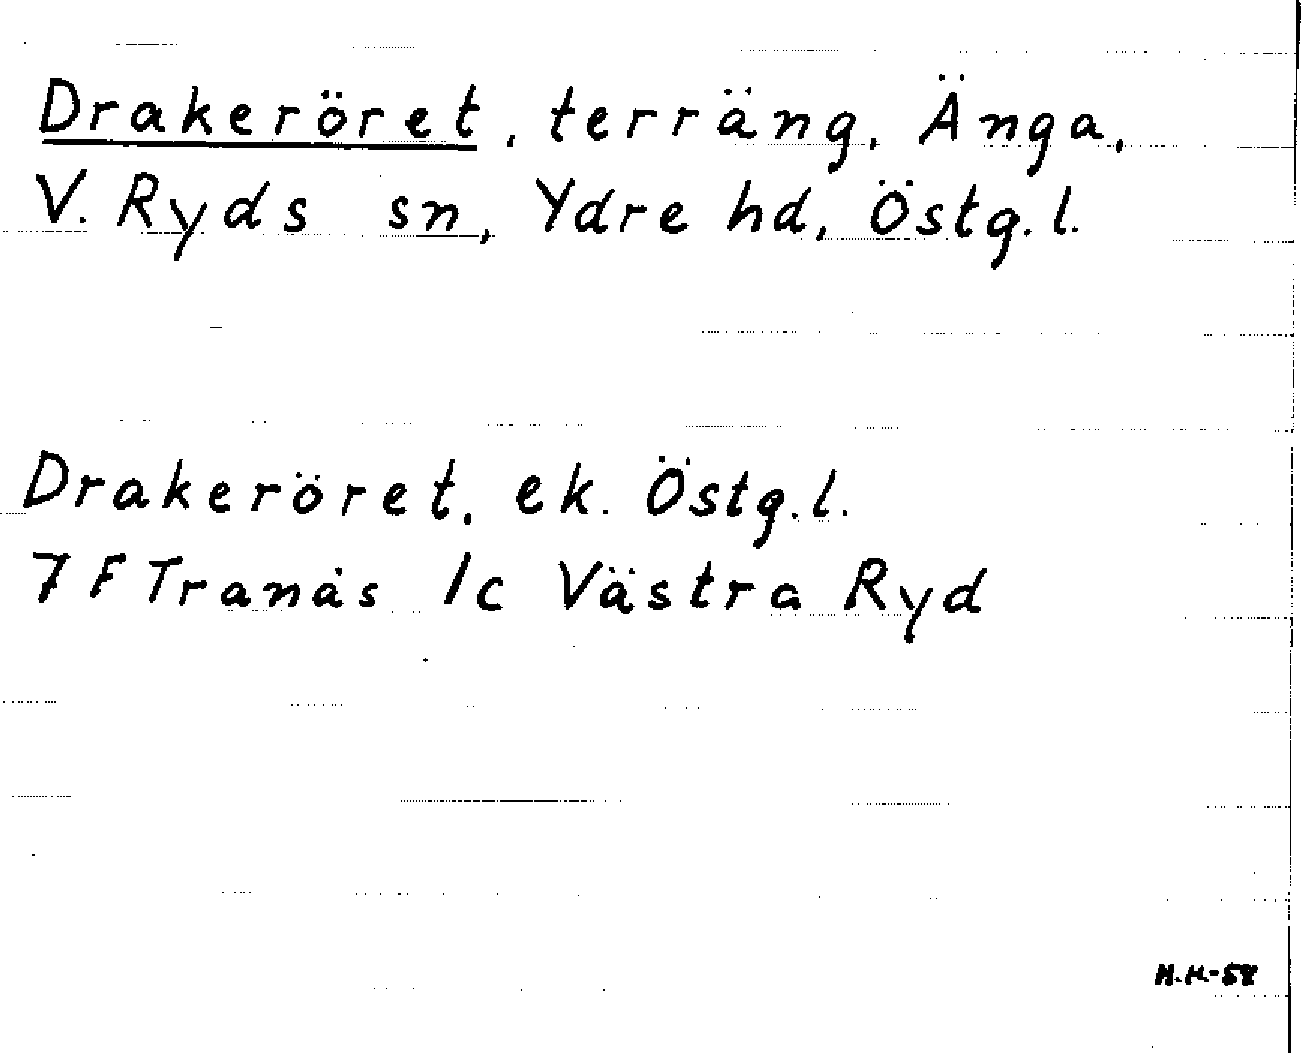 Drakeröret, terräng, Änga,
V. Ryds sn, Ydre hd, Östg. l.
Drakeröret, ek. Östg. l.
7 F Tranås 1c Västra Ryd
H.H.-58